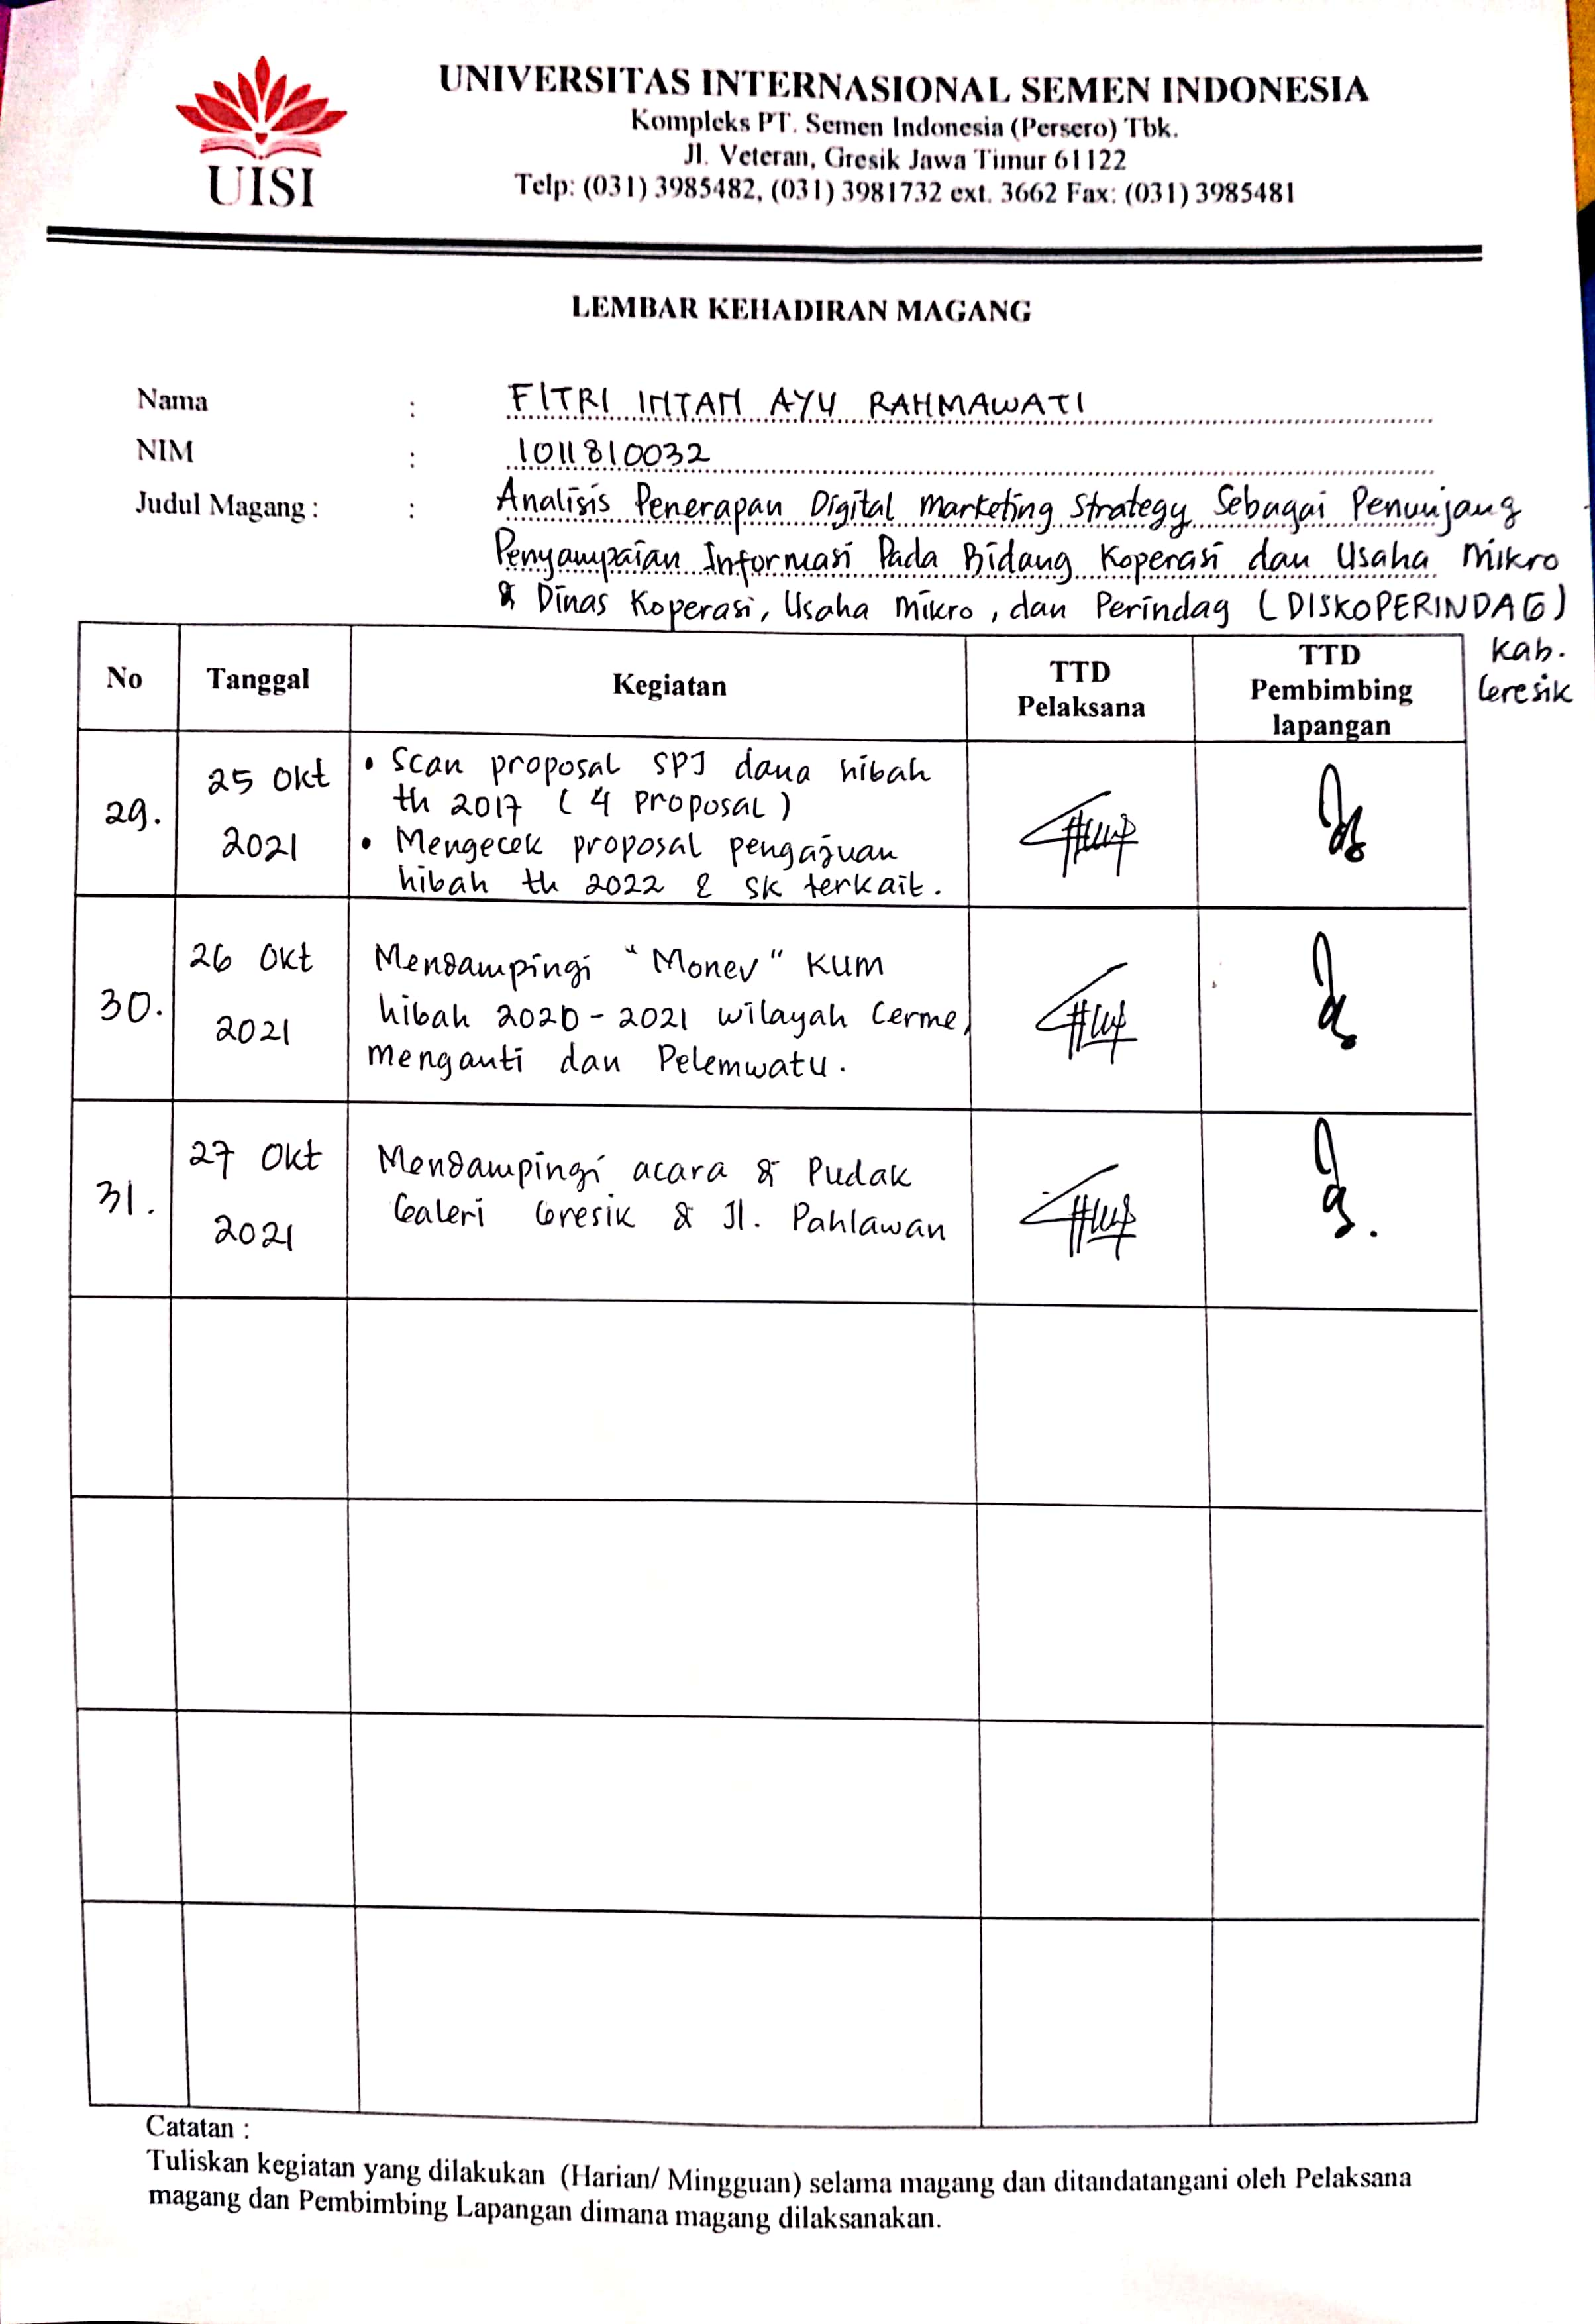 UISI
UNIVERSITAS INTERNASIONAL SEMEN INDONESIA
Kompleks PT. Semen Indonesia (Persero) Tbk.
Jl. Veteran, Gresik Jawa Timur 61122
Telp: (031) 3985482, (031) 3981732 ext. 3662 Fax: (031) 3985481
LEMBAR KEHADIRAN MAGANG
Nama : FITRI INTAN AYU RAHMAWATI
NIM : 1011810032
Judul Magang : : Analisis Penerapan Digital Marketing Strategy Sebagai Penunjang
Penyampaian Informasi Pada Bidang Koperasi dan Usaha Mikro
di Dinas Koperasi, Usaha Mikro, dan Perindag (DISKOPERINDAG)
Kab.
Gresik
No Tanggal Kegiatan TTD Pelaksana TTD Pembimbing lapangan
29. 25 Okt 2021
• Scan proposal SPJ dana hibah
th 2017 (4 Proposal)
• Mengecek proposal pengajuan
hibah th 2022 & SK terkait.
30. 26 Okt 2021
Mendampingi "Monev" KUM
hibah 2020-2021 wilayah Cerme,
menganti dan Pelemwatu.
31. 27 Okt 2021
Mendampingi acara di Pudak
Galeri Gresik di Jl. Pahlawan
Catatan :
Tuliskan kegiatan yang dilakukan (Harian/ Mingguan) selama magang dan ditandatangani oleh Pelaksana
magang dan Pembimbing Lapangan dimana magang dilaksanakan.